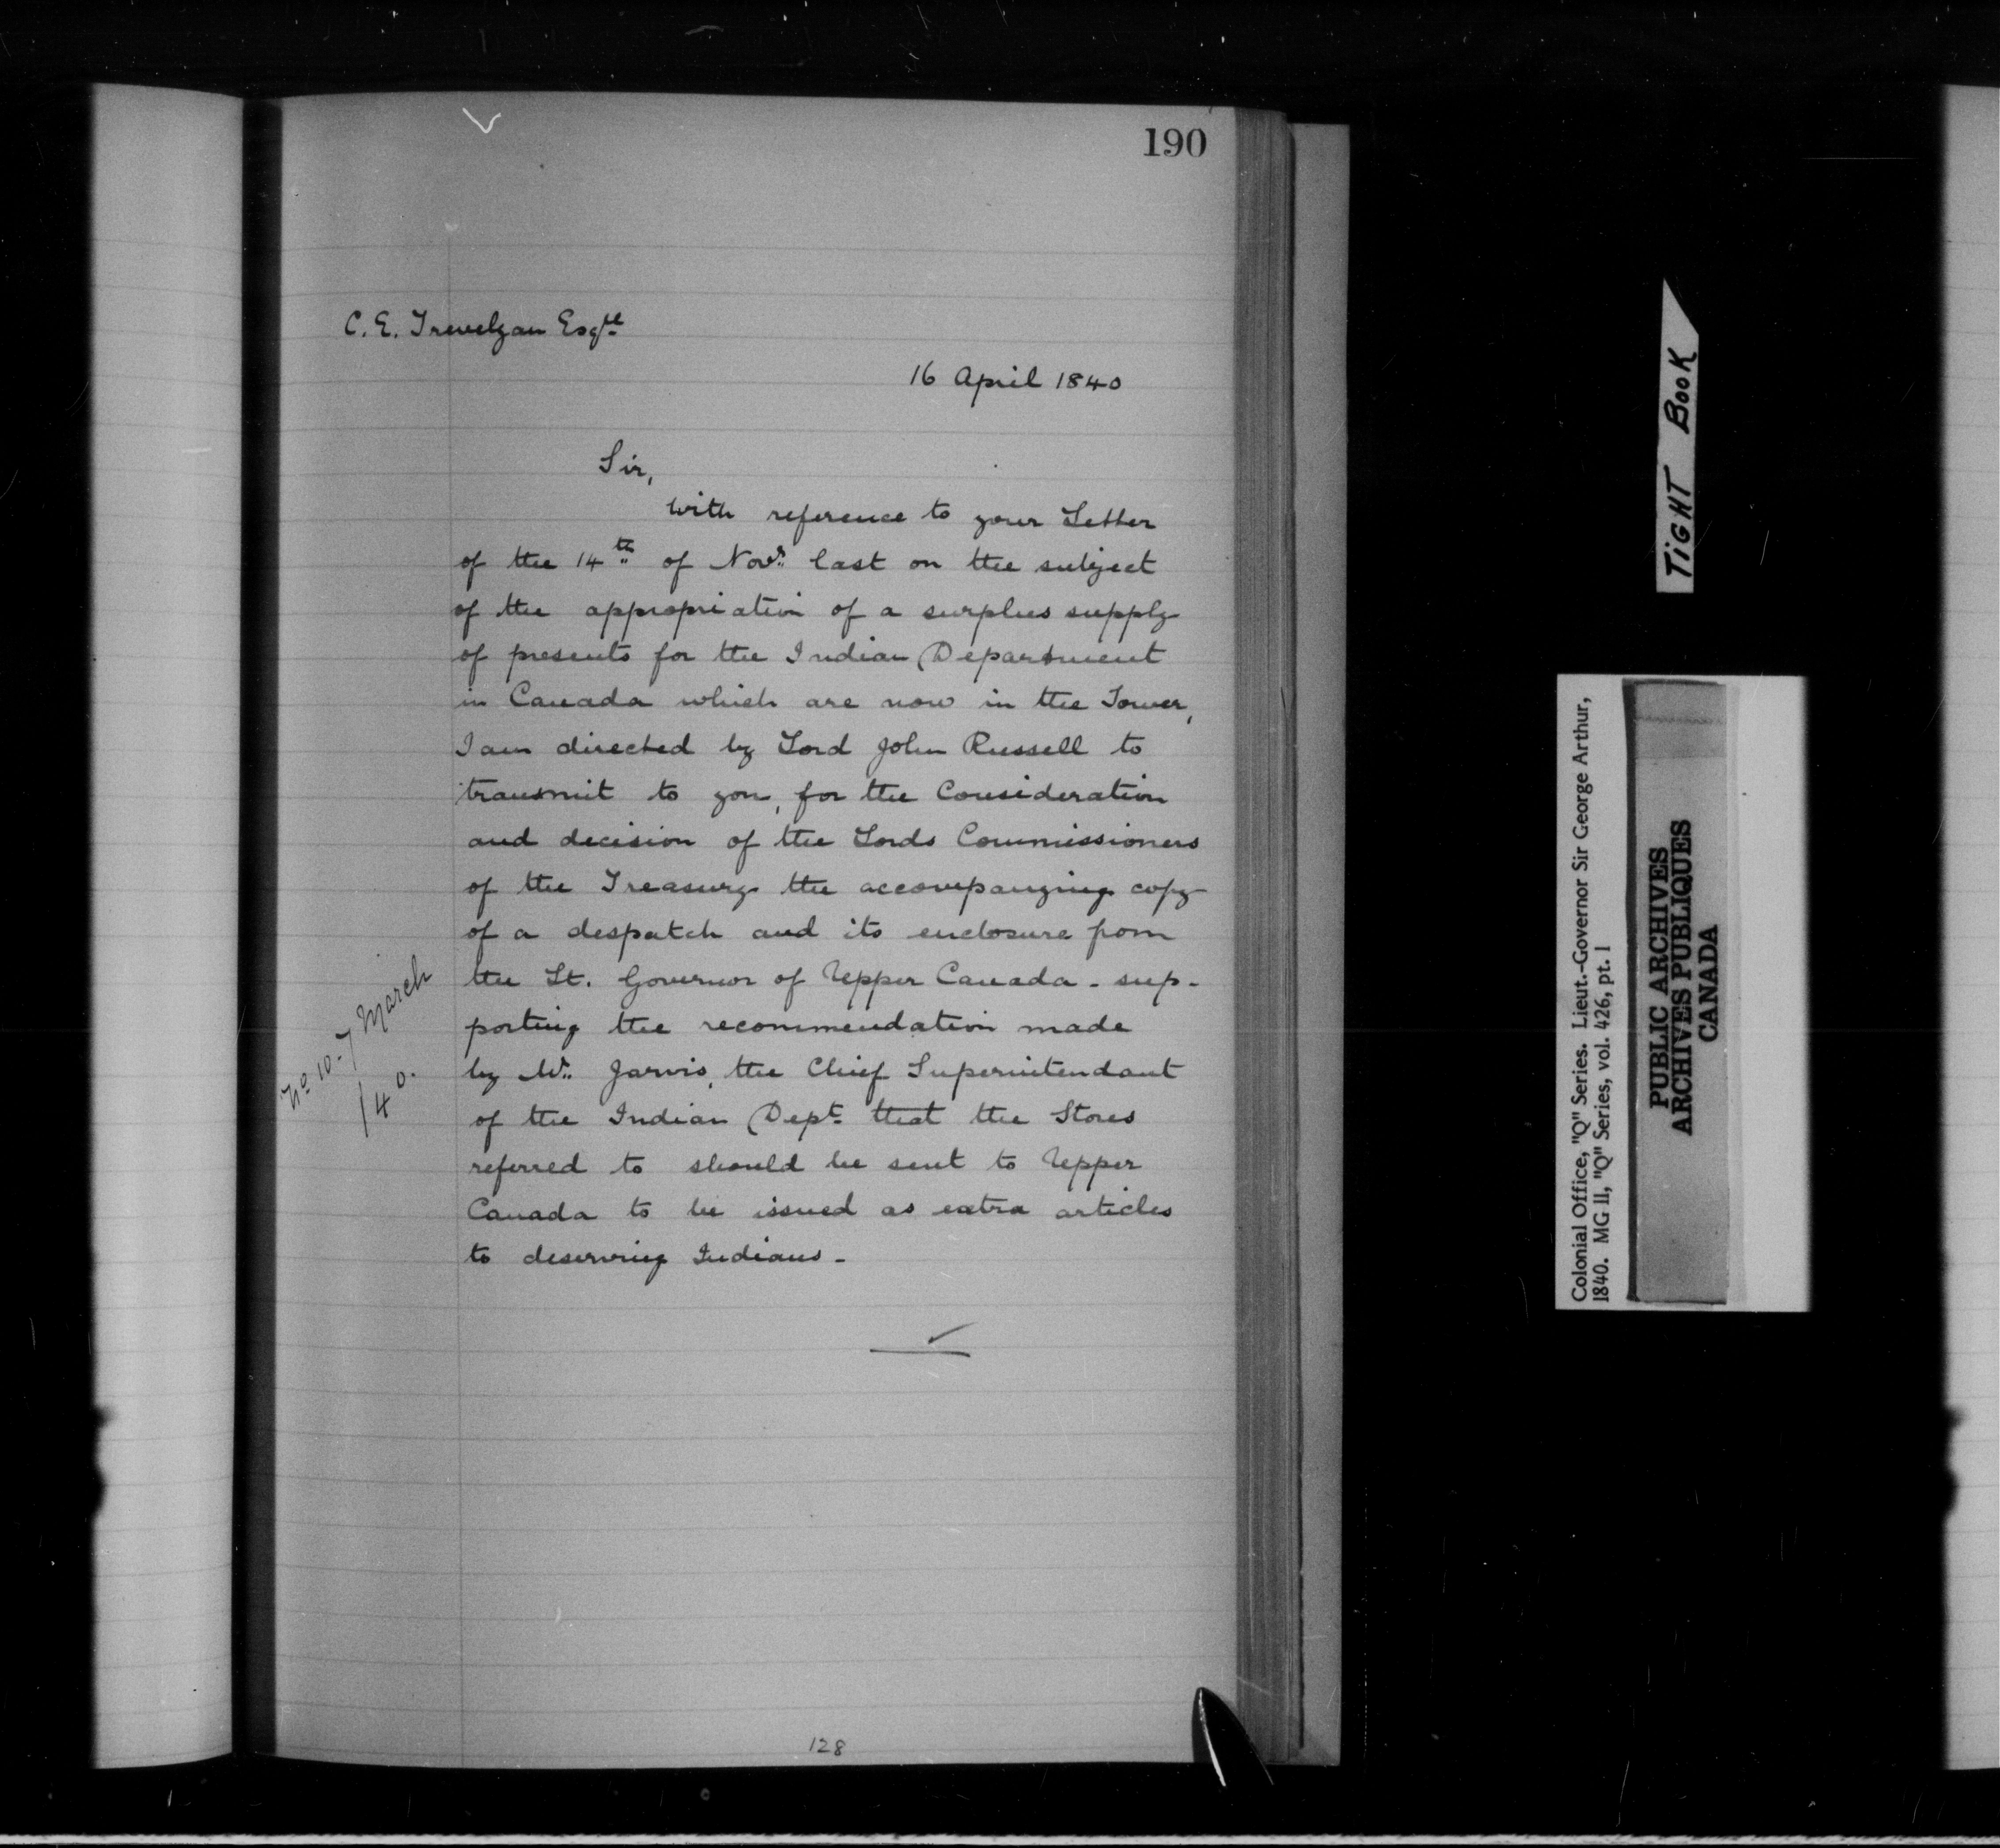 190
C. E. Trevelyan Esqre
16 April 1840
Sir,
with reference to your Letter
of the 14th of Novr. last on the subject
of the appropriation of a surplus supply
of presents for the Indian Department
in Canada which are now in the Tower,
I am directed by Lord John Russell to
transmit to you, for the Consideration
and decision of the Lords Commissioners
of the Treasury the accompanying copy
of a despatch and its enclosure from
the Lt. Governor of Upper Canada - sup-
porting the recommendation made
by Mr. Jarvis, the Chief Superintendant
of the Indian Dept. that the Stores
referred to should be sent to Upper
Canada to be issued as extra articles
to deserving Indians -
No 10 - 7 March
/40.
128
TIGHT BOOK
Colonial Office, "Q" Series. Lieut.-Governor Sir George Arthur,
1840. MG 11, "Q" Series, vol. 426, pt. 1
PUBLIC ARCHIVES
ARCHIVES PUBLIQUES
CANADA